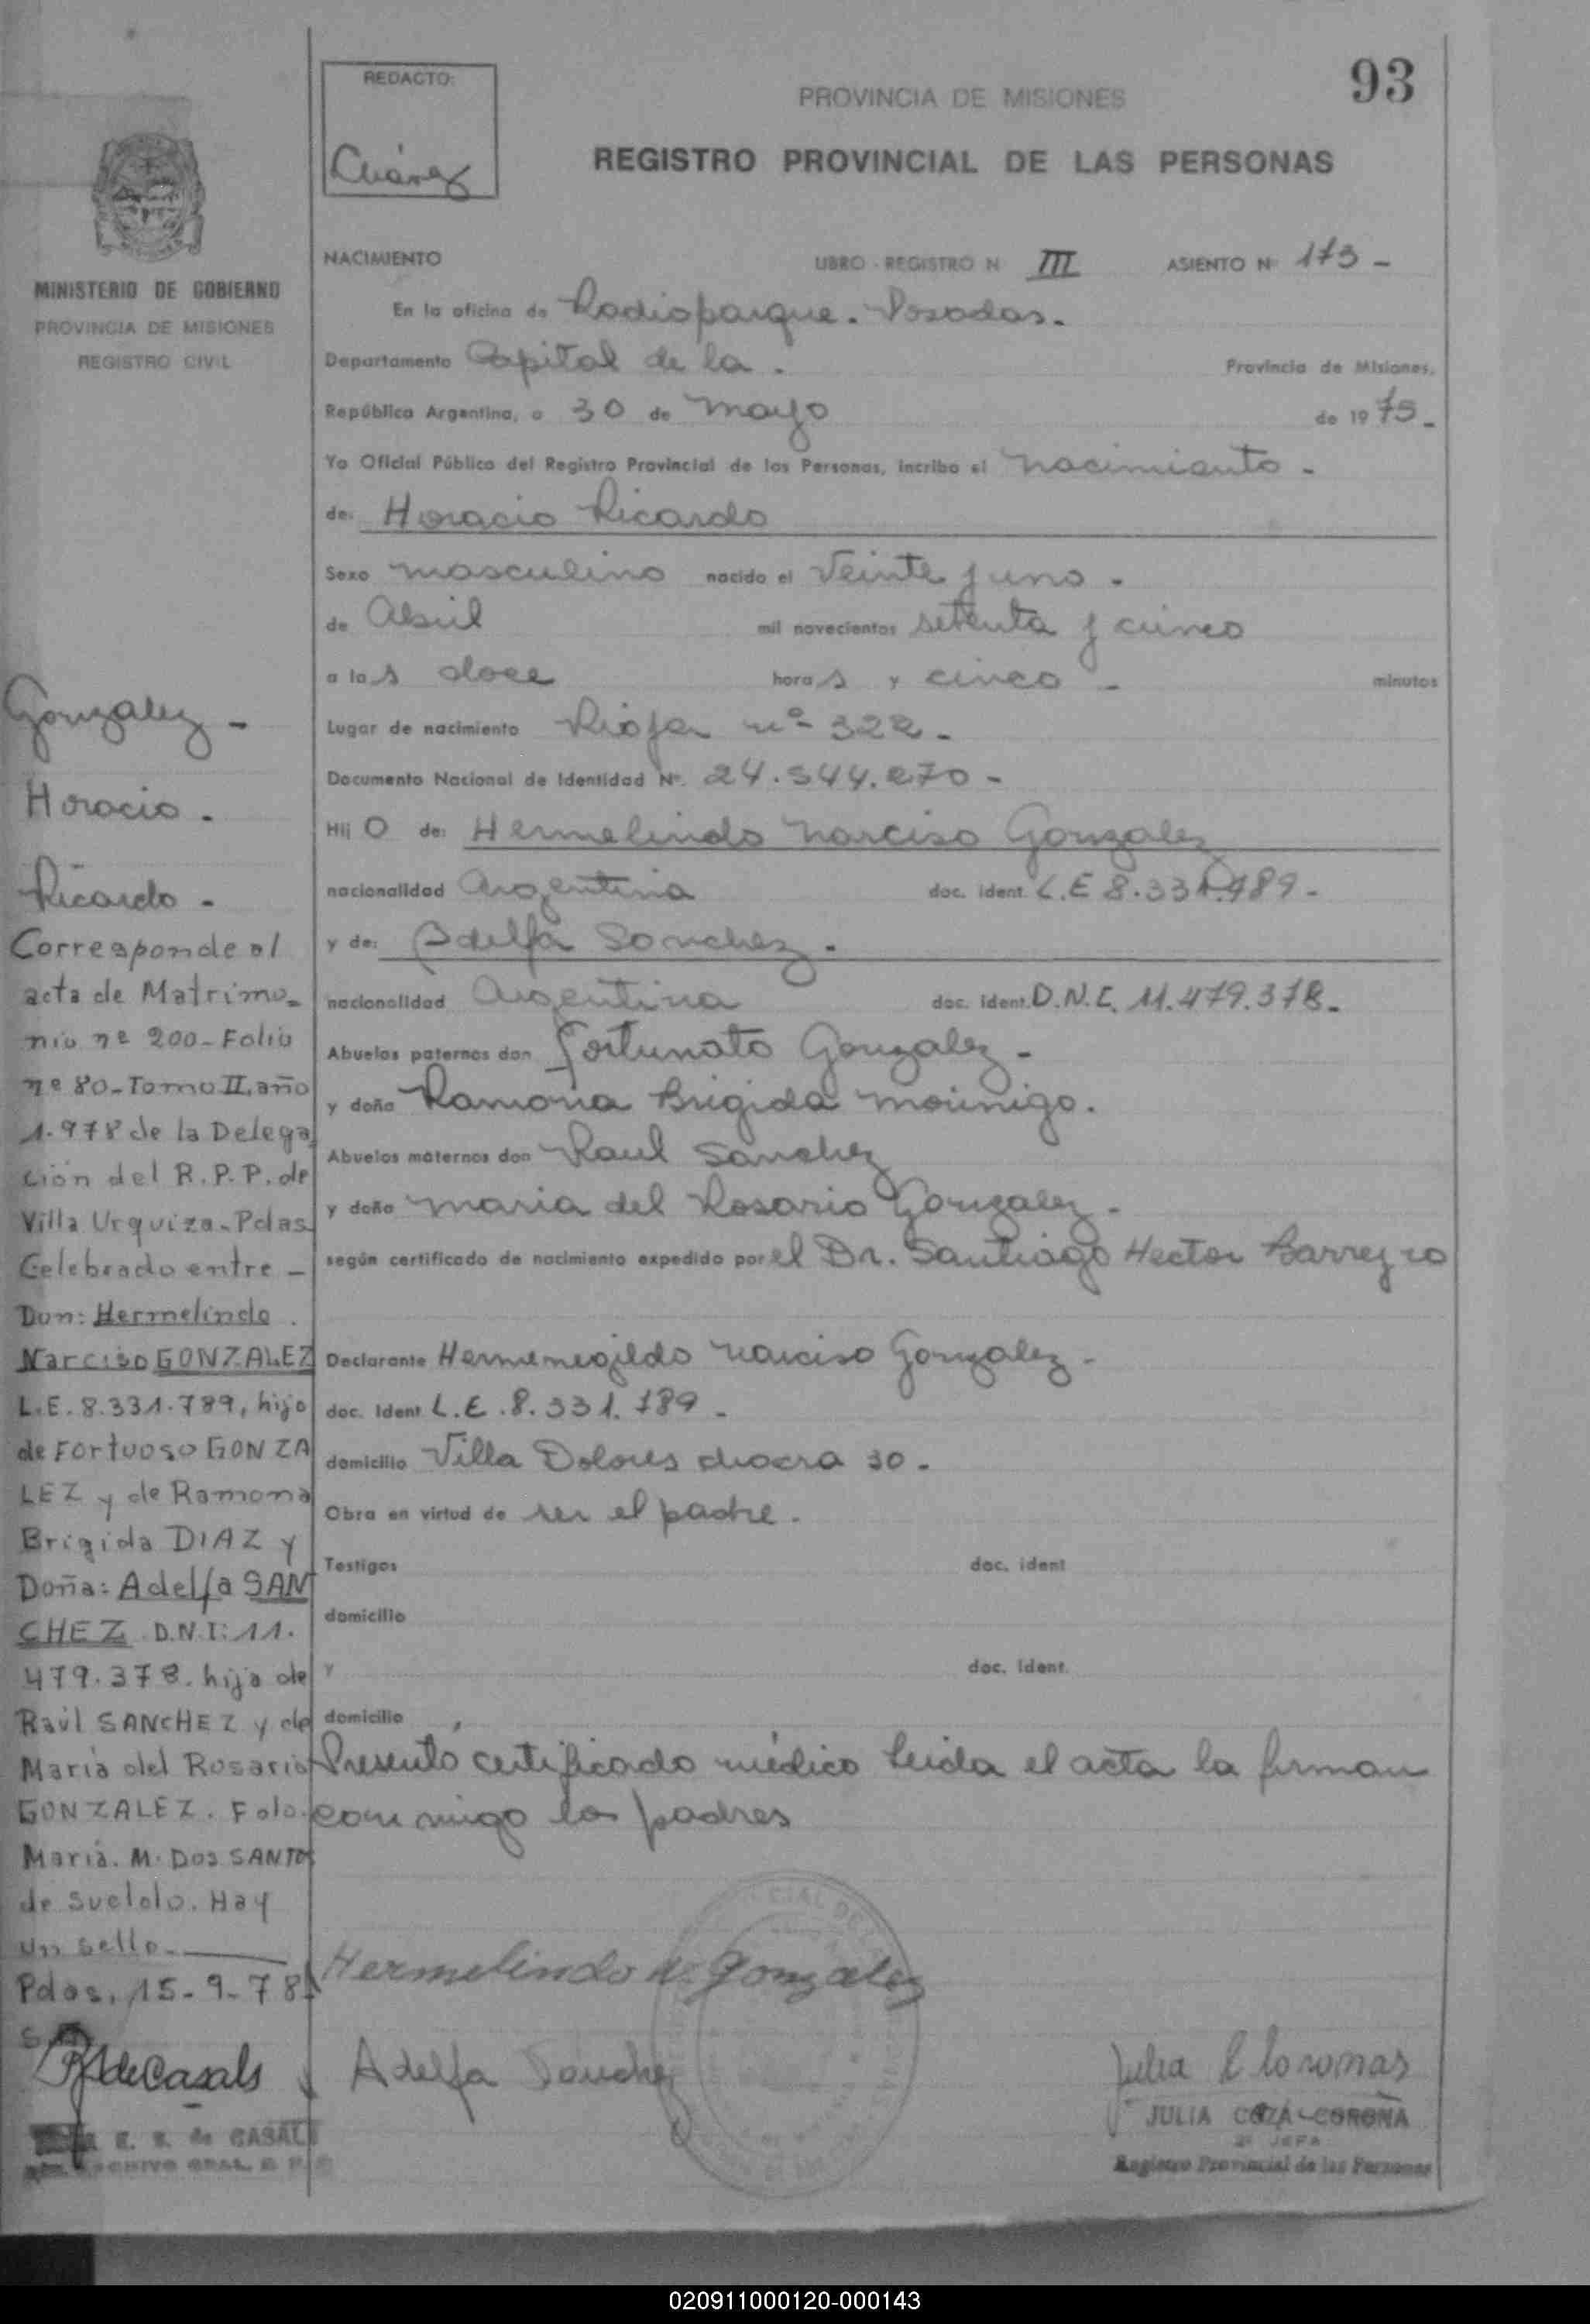 93
REDACTO:
PROVINCIA DE MISIONES
REGISTRO PROVINCIAL DE LAS PERSONAS
MINISTERIO DE GOBIERNO
PROVINCIA DE MISIONES
REGISTRO CIVIL
NACIMIENTO LIBRO - REGISTRO N III ASIENTO N 173 -
En la oficina de Radioparque. Posadas.
Departamento Capital de la. Provincia de Misiones,
República Argentina, a 30 de mayo de 1975.
Yo Oficial Público del Registro Provincial de las Personas, incribo el nacimiento.
de: Horacio Ricardo
Sexo masculino nacido el Veinte y uno.
de Abril mil novecientos setenta y cinco
a las doce horas y cinco - minutos
Lugar de nacimiento Rioja nº 322.
Documento Nacional de Identidad Nº. 24.544.270 -
Hijo de: Hermelindo Narciso Gonzalez
nacionalidad Argentina doc. ident. L.E 8.331.789 -
y de: Adelfa Sanchez.
nacionalidad Argentina doc. ident. D.N.I. 11.479.378.
Abuelos paternos don Fortunato Gonzalez -
y doña Ramona Brigida
Abuelos maternos don Raul Sanchez
y doña Maria del Rosario Gonzalez.
según certificado de nacimiento expedido por el Dr. Santiago Hector Barreyro
Declarante Hermenegildo Narciso Gonzalez -
doc. Ident L.E. 8.331.789 -
domicilio Villa Dolores chacra 30.
Obra en virtud de ser el padre.
Testigos doc. ident
domicilio
y doc. Ident.
domicilio
Presentó certificado médico leida el acta la firman
con migo los padres
Hermelindo N. Gonzalez
Adelfa Sanchez
JULIA COZA CORONA
2º JEFA
Registro Provincial de las Personas
Gonzalez -
Horacio.
Ricardo.
Corresponde al
acta de Matrimo-
nio nº 200 - Folio
nº 80 - Tomo II, año
1.978 de la Delega
ción del R.P.P. de
Villa Urquiza - Pdas
Celebrado entre -
Don: Hermelindo
Narciso GONZALEZ
L.E. 8.331.789, hijo
de Fortuoso GONZA
LEZ y de Ramona
Brigida DIAZ y
Doña: Adelfa SAN
CHEZ D.N.I: 11.
479.378. hija de
Raúl SANCHEZ y de
María del Rosario
GONZALEZ. Fdo.
María. M. Dos SANTOS
de Sueldo. Hay
un sello.
Pdas, 15-9-78
de Casals
de CASALS
020911000120-000143